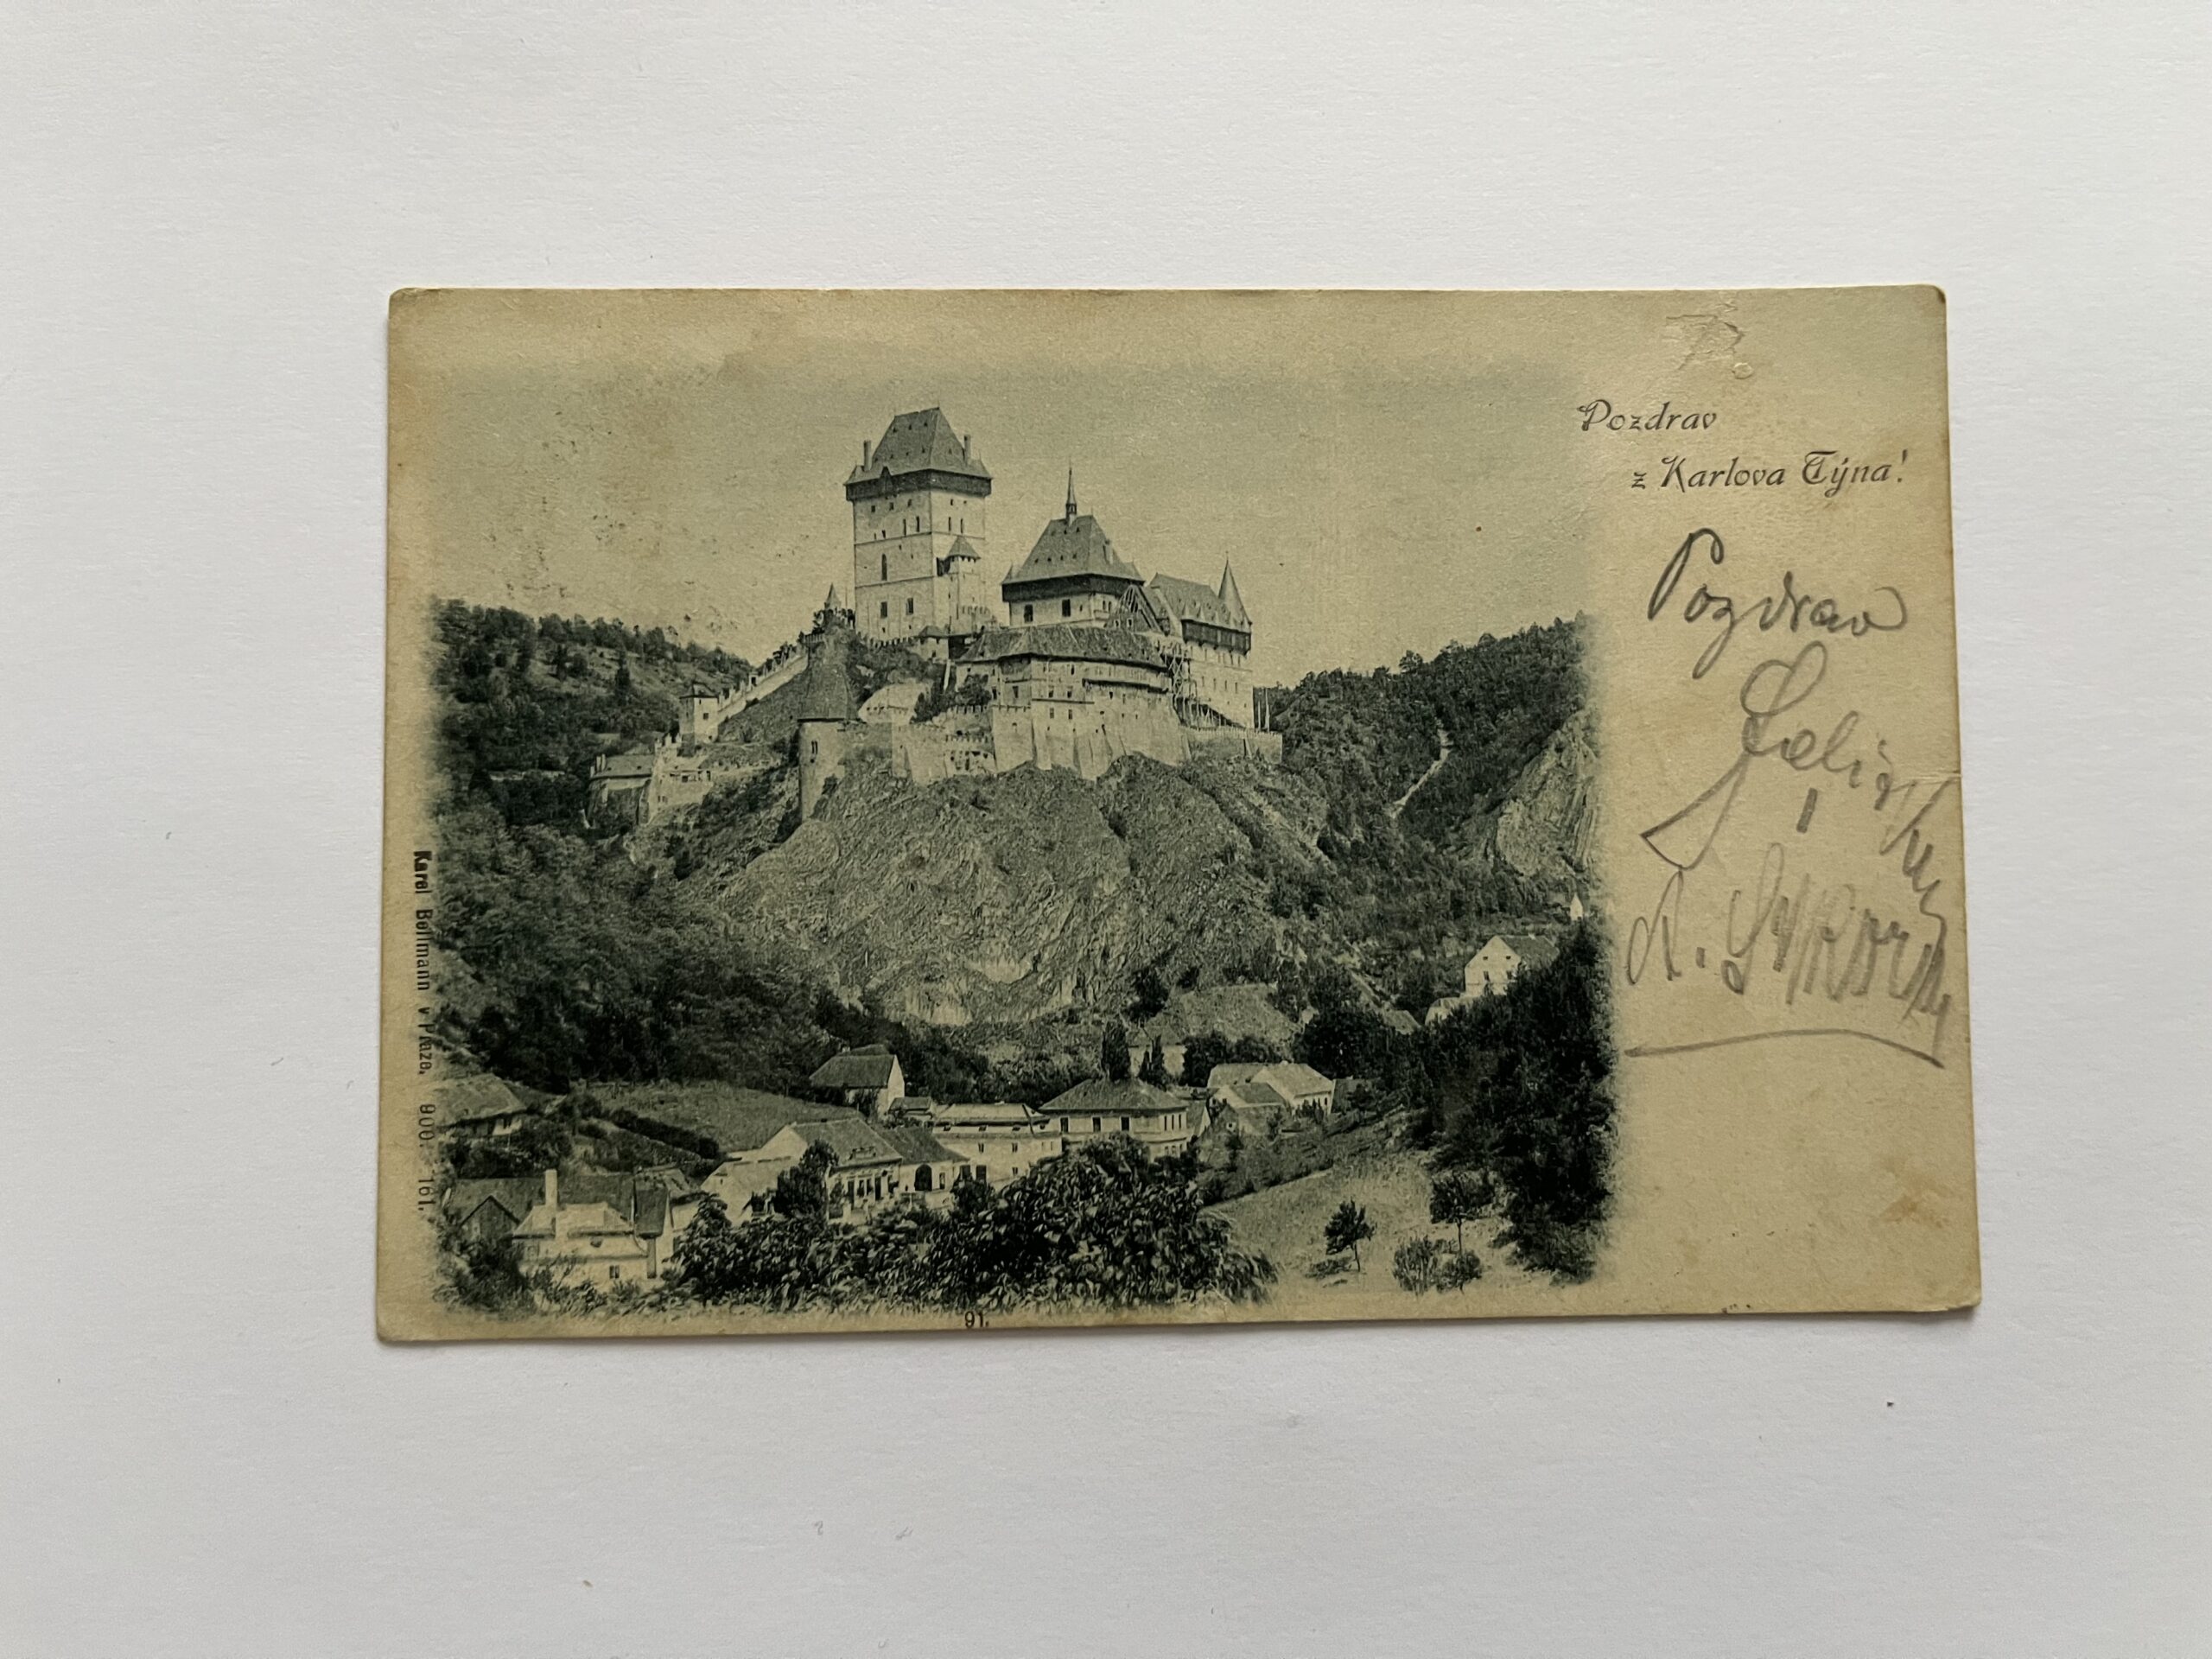 Pozdrav
z Karlova Týna!
Pozdrav
Karel Bellmann v Praze, 900.-161.
91.